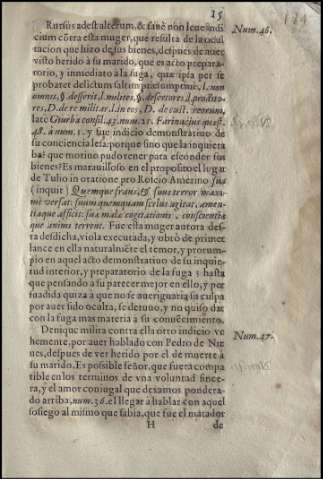 15
Rursùs adest alterum, & sanè non leue indi-
cium cõtra esta muger, que resulta de la ocul-
tacion que hizo de sus bienes, despues de auer
visto herido a su marido, que es acto prepara-
torio, y inmediato a la fuga, quæ ipsa per se
probaret delictum saltim præsumptiuè, l. non
omnes, §. desserit, l. milites, §. desertores, l. prodito-
res, D. de re militar. l. in eos, D. de cust. reorum,
latè Giurba consil. 47. num. 21. Farinacius quæst.
48. à num. 1. y fue indicio demonstratiuo de
su conciencia lesa: porque sino que la inquieta
ba? que motiuo pudo tener para esconder sus
bienes? Es marauilloso en el proposito el lugar
de Tulio in oratione pro Roscio Amerino sua
(inquit) Quemque fraus, & suus terror maxi-
mè versat: suum quemquam scelus agitat, amen-
tiaque afficit: suæ malæ cogitationes, conscientiæ
que animi terrent. Fue esta muger autora des-
ta desdicha, viola executada, y obrò de primer
lance en ella naturalmẽte el temor, y prorum-
pio en aquel acto demonstratiuo de su inquie-
tud interior, y preparatorio de la fuga; hasta
que pensando a su parecer mejor en ello, y per
suadida quizà a que no se aueriguaria su culpa
por auer sido oculta, se detuuo, y no quiso dar
con la fuga mas materia a su conuencimiento.
Denique milita contra ella otro indicio ve
hemente, por auer hablado con Pedro de Nu-
nes, despues de ver herido por el de muerte à
su marido. Es possible señor, que fuera compa
tible en los terminos de vna voluntad since-
ra, y el amor coniugal que dexamos pondera-
do arriba, num. 36. el llegar a hablar con aquel
sossiego al mismo que sabia, que fue el matador
H de
Num. 46.
Num. 47.